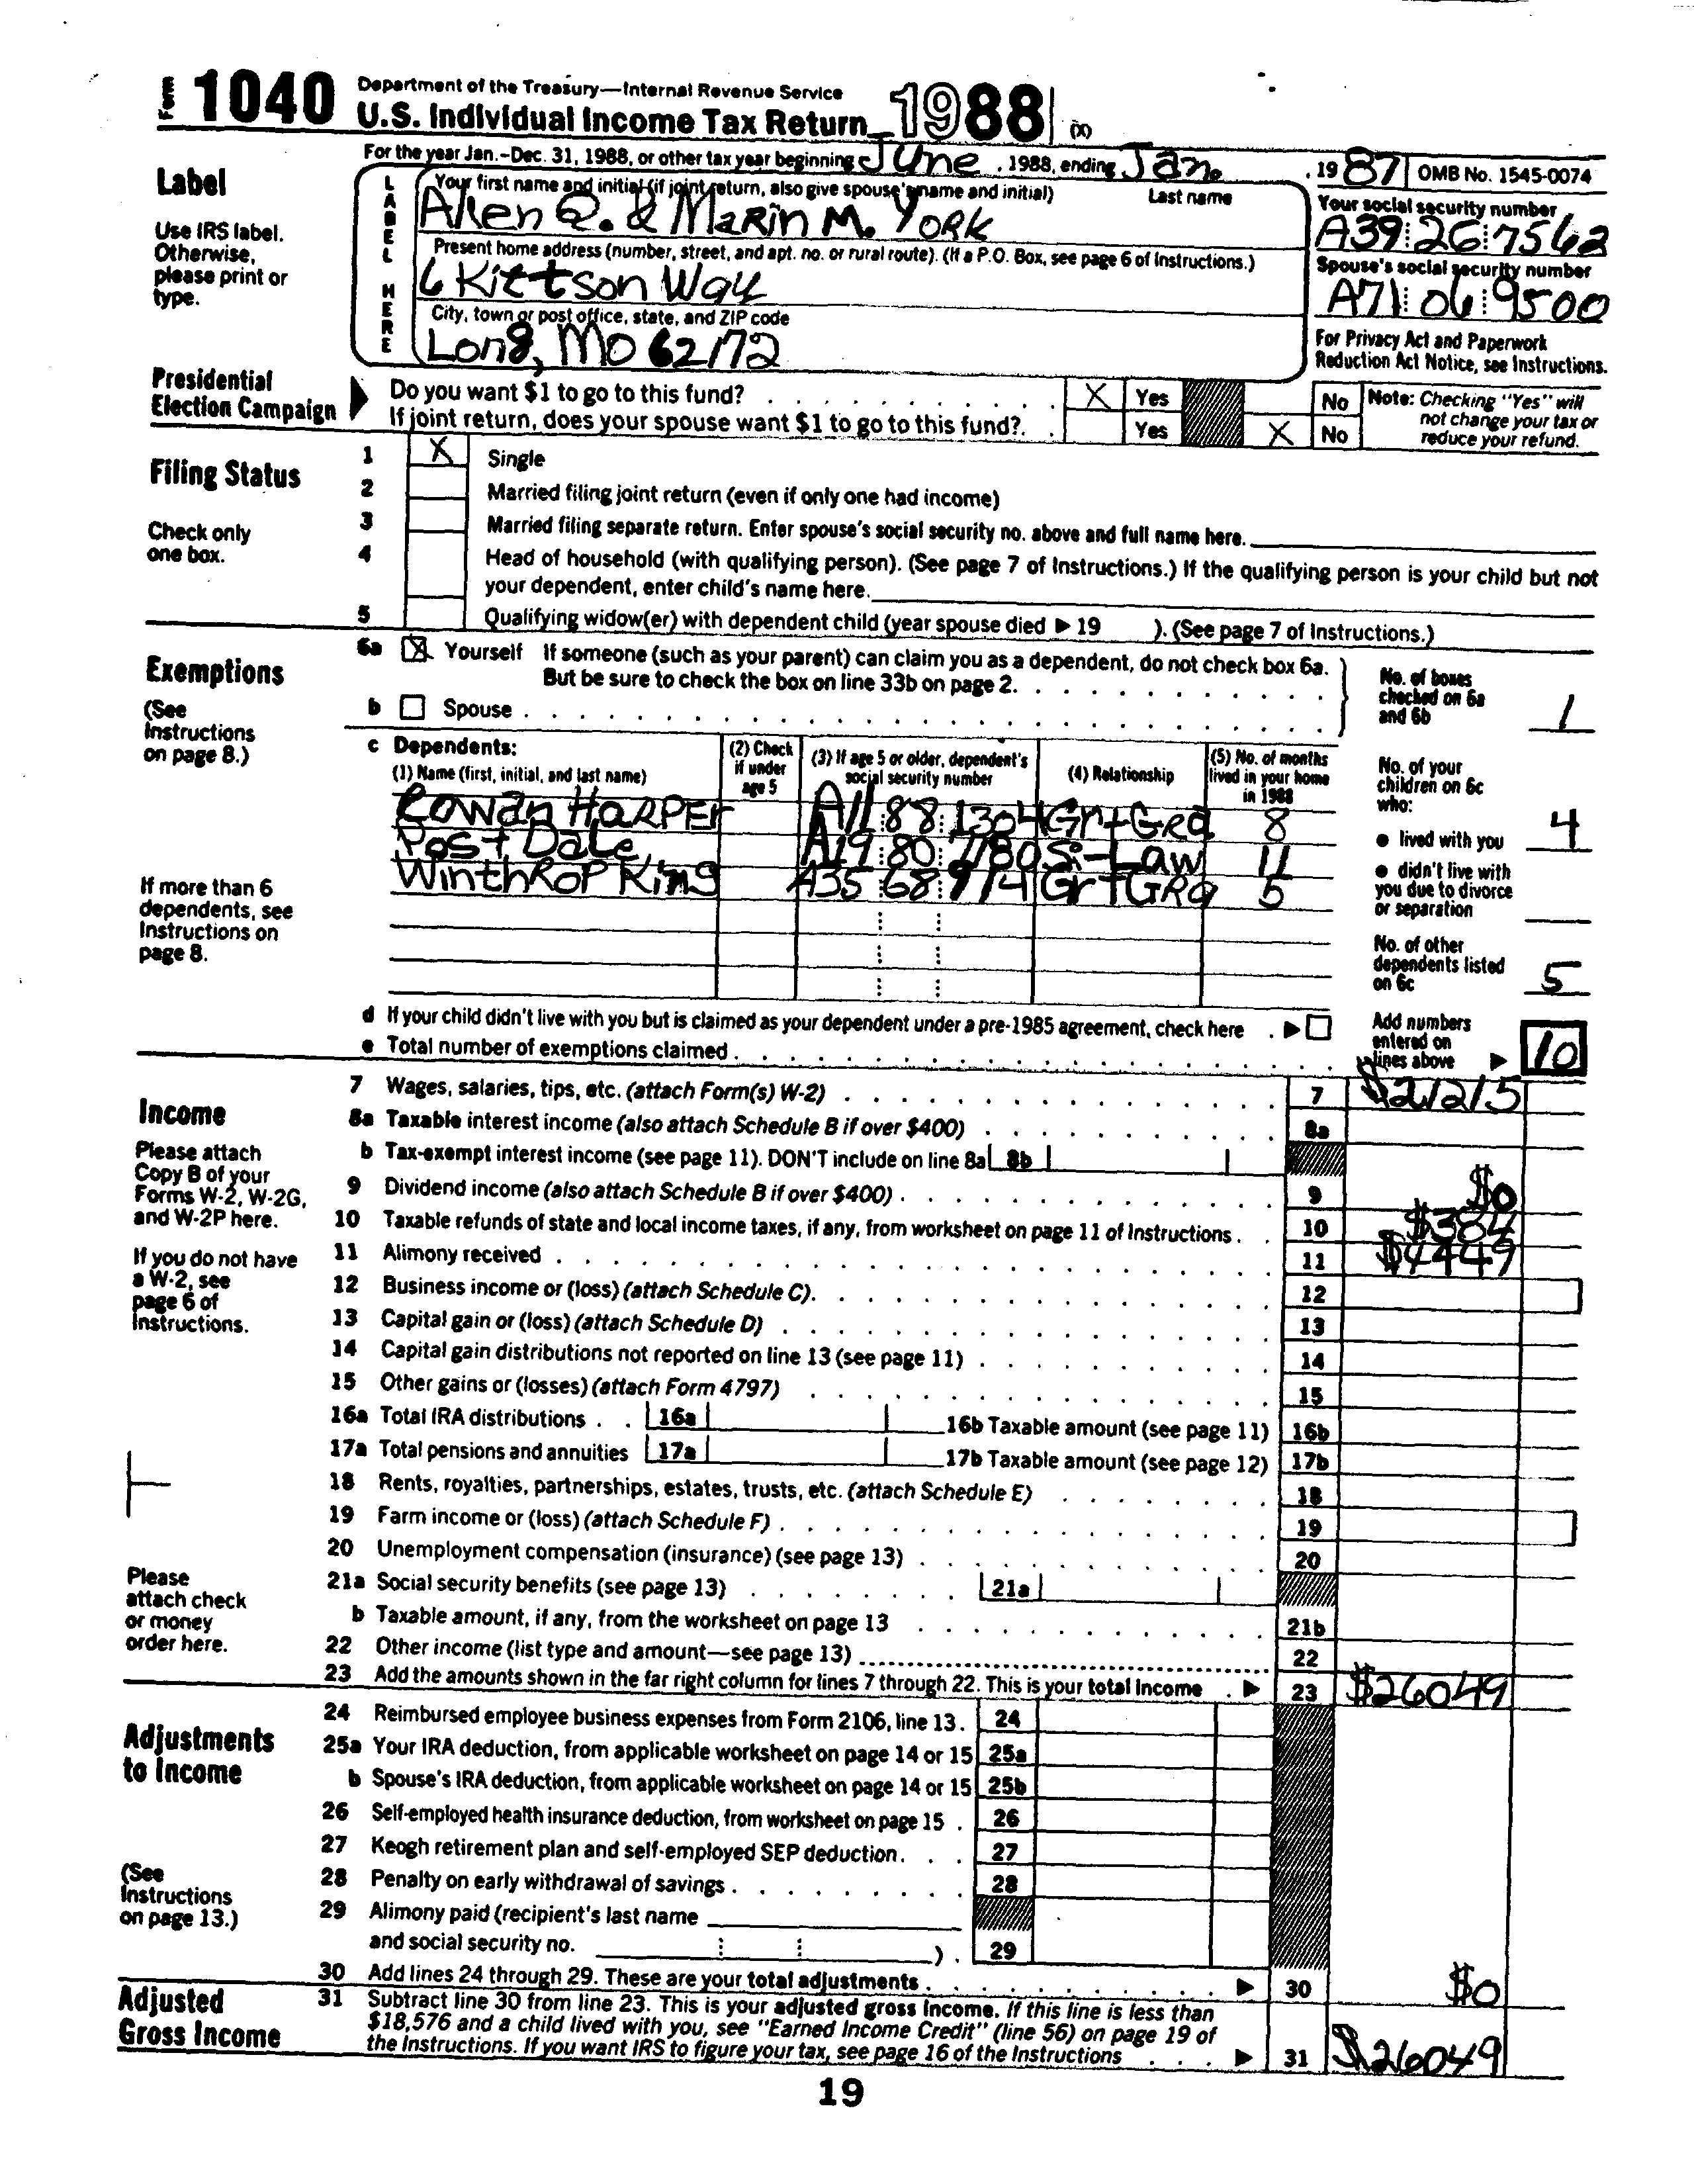 Form 1040 Department of the Treasury—Internal Revenue Service
U.S. Individual Income Tax Return 1988 (X)
For the year Jan.-Dec. 31, 1988, or other tax year beginning June , 1988, ending Jan. , 19 87 OMB No. 1545-0074
Label
Use IRS label.
Otherwise,
please print or
type.
LABEL HERE
Your first name and initial (if joint return, also give spouse's name and initial) Last name
Allen Q. & Marin M. York
Your social security number
A39 26 7562
Present home address (number, street, and apt. no. or rural route). (If a P.O. Box, see page 6 of Instructions.)
6 Kittson Way
Spouse's social security number
A71 06 9500
City, town or post office, state, and ZIP code
Long, MO 62172
For Privacy Act and Paperwork
Reduction Act Notice, see Instructions.
Presidential
Election Campaign
Do you want $1 to go to this fund? X Yes No
If joint return, does your spouse want $1 to go to this fund? Yes X No
Note: Checking "Yes" will
not change your tax or
reduce your refund.
Filing Status
Check only
one box.
1 X Single
2 Married filing joint return (even if only one had income)
3 Married filing separate return. Enter spouse's social security no. above and full name here.
4 Head of household (with qualifying person). (See page 7 of Instructions.) If the qualifying person is your child but not
your dependent, enter child's name here.
5 Qualifying widow(er) with dependent child (year spouse died ▶ 19 ). (See page 7 of Instructions.)
Exemptions
(See
Instructions
on page 8.)
6a X Yourself If someone (such as your parent) can claim you as a dependent, do not check box 6a.
But be sure to check the box on line 33b on page 2.
b Spouse
No. of boxes
checked on 6a
and 6b 1
c Dependents:
(1) Name (first, initial, and last name)
(2) Check
if under
age 5
(3) If age 5 or older, dependent's
social security number
(4) Relationship
(5) No. of months
lived in your home
in 1988
Rowan Harper A11 88 1304 Gr+Gra 8
Post Dale A19 80 7780 Si-Law 11
Winthrop King A35 68 9714 Gr+Gra 5
No. of your
children on 6c
who:
● lived with you 4
● didn't live with
you due to divorce
or separation
No. of other
dependents listed
on 6c 5
If more than 6
dependents, see
Instructions on
page 8.
d If your child didn't live with you but is claimed as your dependent under a pre-1985 agreement, check here ▶
e Total number of exemptions claimed
Add numbers
entered on
lines above ▶ 10
Income
Please attach
Copy B of your
Forms W-2, W-2G,
and W-2P here.
If you do not have
a W-2, see
page 6 of
Instructions.
Please
attach check
or money
order here.
7 Wages, salaries, tips, etc. (attach Form(s) W-2) 7 $21215
8a Taxable interest income (also attach Schedule B if over $400) 8a
b Tax-exempt interest income (see page 11). DON'T include on line 8a 8b
9 Dividend income (also attach Schedule B if over $400) 9 $0
10 Taxable refunds of state and local income taxes, if any, from worksheet on page 11 of Instructions 10 $384
11 Alimony received 11 $4449
12 Business income or (loss) (attach Schedule C) 12
13 Capital gain or (loss) (attach Schedule D) 13
14 Capital gain distributions not reported on line 13 (see page 11) 14
15 Other gains or (losses) (attach Form 4797) 15
16a Total IRA distributions 16a 16b Taxable amount (see page 11) 16b
17a Total pensions and annuities 17a 17b Taxable amount (see page 12) 17b
18 Rents, royalties, partnerships, estates, trusts, etc. (attach Schedule E) 18
19 Farm income or (loss) (attach Schedule F) 19
20 Unemployment compensation (insurance) (see page 13) 20
21a Social security benefits (see page 13) 21a
b Taxable amount, if any, from the worksheet on page 13 21b
22 Other income (list type and amount—see page 13) 22
23 Add the amounts shown in the far right column for lines 7 through 22. This is your total income ▶ 23 $26049
Adjustments
to Income
(See
Instructions
on page 13.)
24 Reimbursed employee business expenses from Form 2106, line 13. 24
25a Your IRA deduction, from applicable worksheet on page 14 or 15 25a
b Spouse's IRA deduction, from applicable worksheet on page 14 or 15 25b
26 Self-employed health insurance deduction, from worksheet on page 15 26
27 Keogh retirement plan and self-employed SEP deduction 27
28 Penalty on early withdrawal of savings 28
29 Alimony paid (recipient's last name
and social security no. ) 29
30 Add lines 24 through 29. These are your total adjustments ▶ 30 $0
Adjusted
Gross Income
31 Subtract line 30 from line 23. This is your adjusted gross income. If this line is less than
$18,576 and a child lived with you, see "Earned Income Credit" (line 56) on page 19 of
the Instructions. If you want IRS to figure your tax, see page 16 of the Instructions ▶ 31 $26049
19